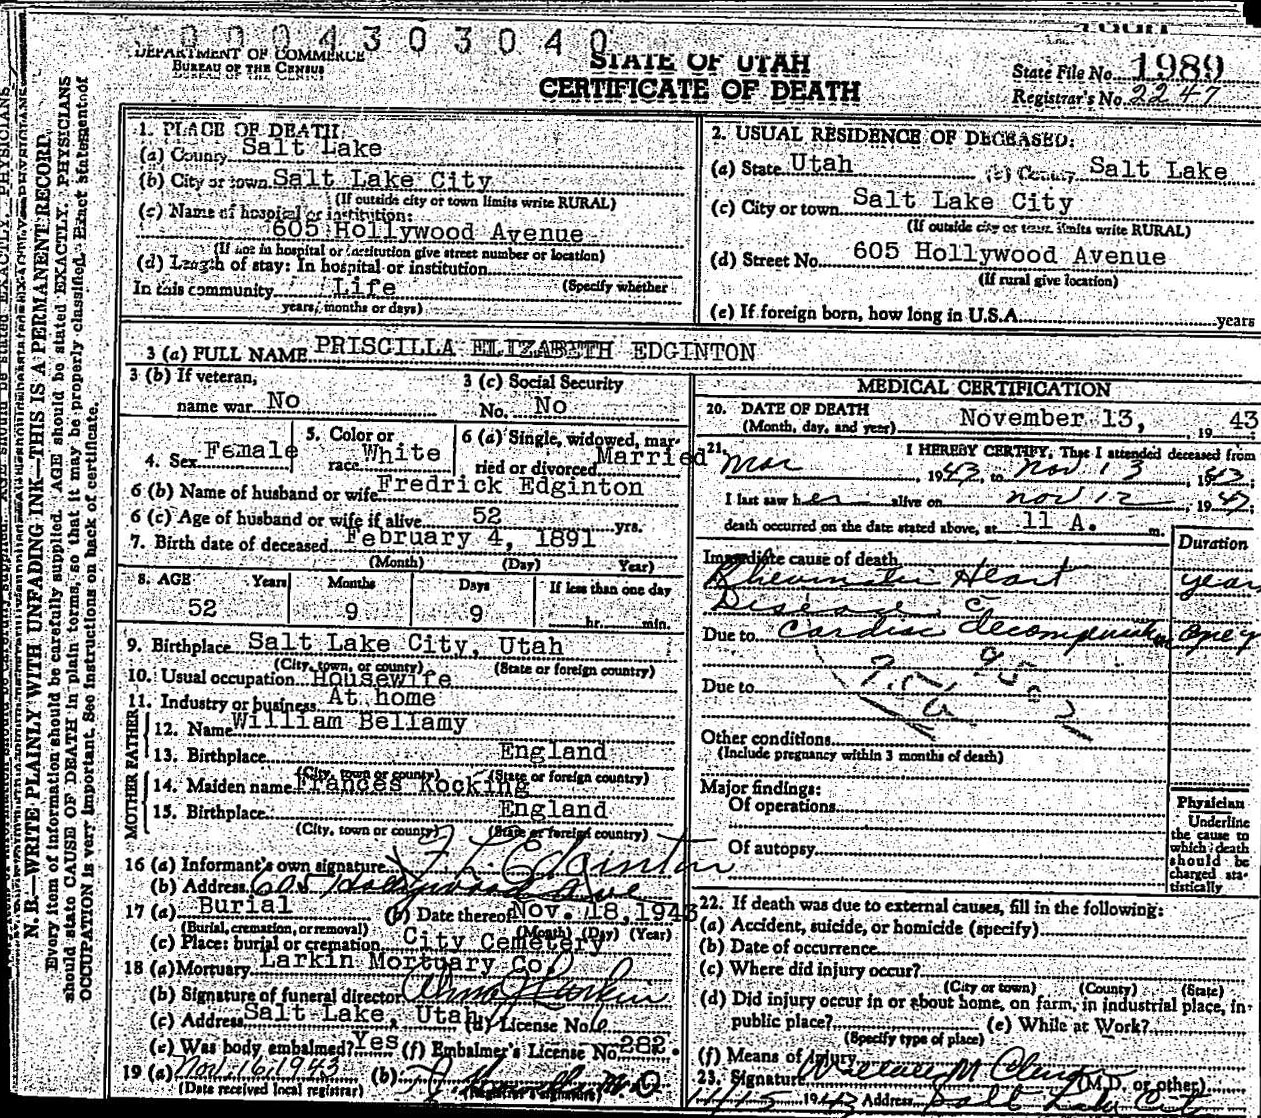 0004303040
DEPARTMENT OF COMMERCE
BUREAU OF THE CENSUS
STATE OF UTAH
CERTIFICATE OF DEATH
State File No. 1989
Registrar's No. 2247
1. PLACE OF DEATH:
(a) County Salt Lake
(b) City or town Salt Lake City
(If outside city or town limits write RURAL)
(c) Name of hospital or institution:
605 Hollywood Avenue
(If not in hospital or institution give street number or location)
(d) Length of stay: In hospital or institution
In this community Life (Specify whether
years, months or days)
2. USUAL RESIDENCE OF DECEASED:
(a) State Utah (b) County Salt Lake
(c) City or town Salt Lake City
(If outside city or town limits write RURAL)
(d) Street No. 605 Hollywood Avenue
(If rural give location)
(e) If foreign born, how long in U.S.A. years
3 (a) FULL NAME PRISCILLA ELIZABETH EDGINTON
3 (b) If veteran,
name war No
3 (c) Social Security
No. No
4. Sex Female
5. Color or
race White
6 (a) Single, widowed, mar-
ried or divorced Married
6 (b) Name of husband or wife Fredrick Edginton
6 (c) Age of husband or wife if alive 52 yrs.
7. Birth date of deceased February 4, 1891
(Month) (Day) Year)
8. AGE Years Months Days If less than one day
52 9 9 hr. min.
9. Birthplace Salt Lake City, Utah
(City, town, or county) (State or foreign country)
10. Usual occupation Housewife
11. Industry or business At home
FATHER
12. Name William Bellamy
13. Birthplace England
(City, town or county) (State or foreign country)
MOTHER
14. Maiden name Frances Kocking
15. Birthplace England
(City, town or county) (State or foreign country)
16 (a) Informant's own signature F L Edginton
(b) Address 605 Hollywood Ave
17 (a) Burial (b) Date thereof Nov. 18, 1943
(Burial, cremation, or removal) (Month) (Day) (Year)
(c) Place: burial or cremation City Cemetery
18 (a) Mortuary Larkin Mortuary Co.
(b) Signature of funeral director Larkin
(c) Address Salt Lake, Utah (d) License No. 6
(e) Was body embalmed? Yes (f) Embalmer's License No. 282.
19 (a) Nov. 16, 1943 (b) M.D.
(Date received local registrar) (Registrar's signature)
MEDICAL CERTIFICATION
20. DATE OF DEATH November 13, 19 43
(Month, day, and year)
21. I HEREBY CERTIFY, That I attended deceased from
Mar 1943, to Nov 13 1943;
I last saw her alive on Nov 12 1943;
death occurred on the date stated above, at 11 A. m.
Duration
Immediate cause of death
Rheumatic Heart years
Disease c̄
Due to Cardiac decompensation
Due to
Other conditions
(Include pregnancy within 3 months of death)
Major findings:
Of operations
Of autopsy
Physician
Underline
the cause to
which death
should be
charged sta-
tistically
22. If death was due to external causes, fill in the following:
(a) Accident, suicide, or homicide (specify)
(b) Date of occurrence
(c) Where did injury occur?
(City or town) (County) (State)
(d) Did injury occur in or about home, on farm, in industrial place, in
public place? (e) While at Work?
(Specify type of place)
(f) Means of Injury
23. Signature (M.D. or other)
11/15 1943 Address Salt Lake City
N. B.—WRITE PLAINLY WITH UNFADING INK—THIS IS A PERMANENT RECORD
Every item of information should be carefully supplied. AGE should be stated EXACTLY. PHYSICIANS
should state CAUSE OF DEATH in plain terms, so that it may be properly classified. Exact statement of
OCCUPATION is very important. See instructions on back of certificate.